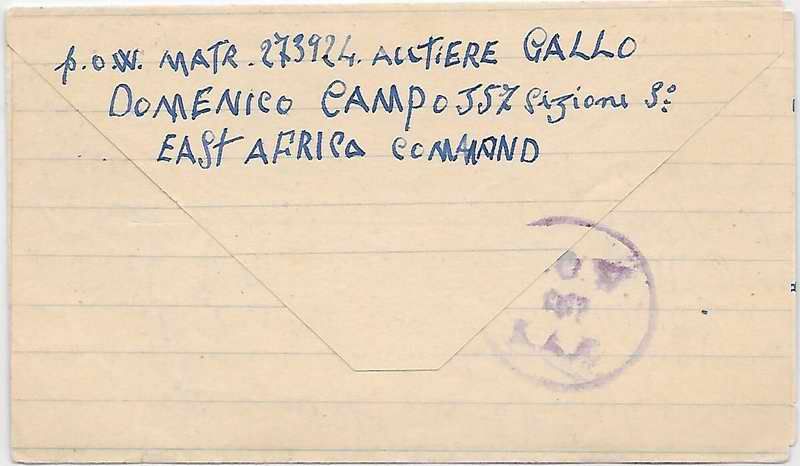 P.O.W. MATR. 273924. ALLTIERE GALLO
DOMENICO CAMPO 357 Sezione 3°
EAST AFRICA COMMAND